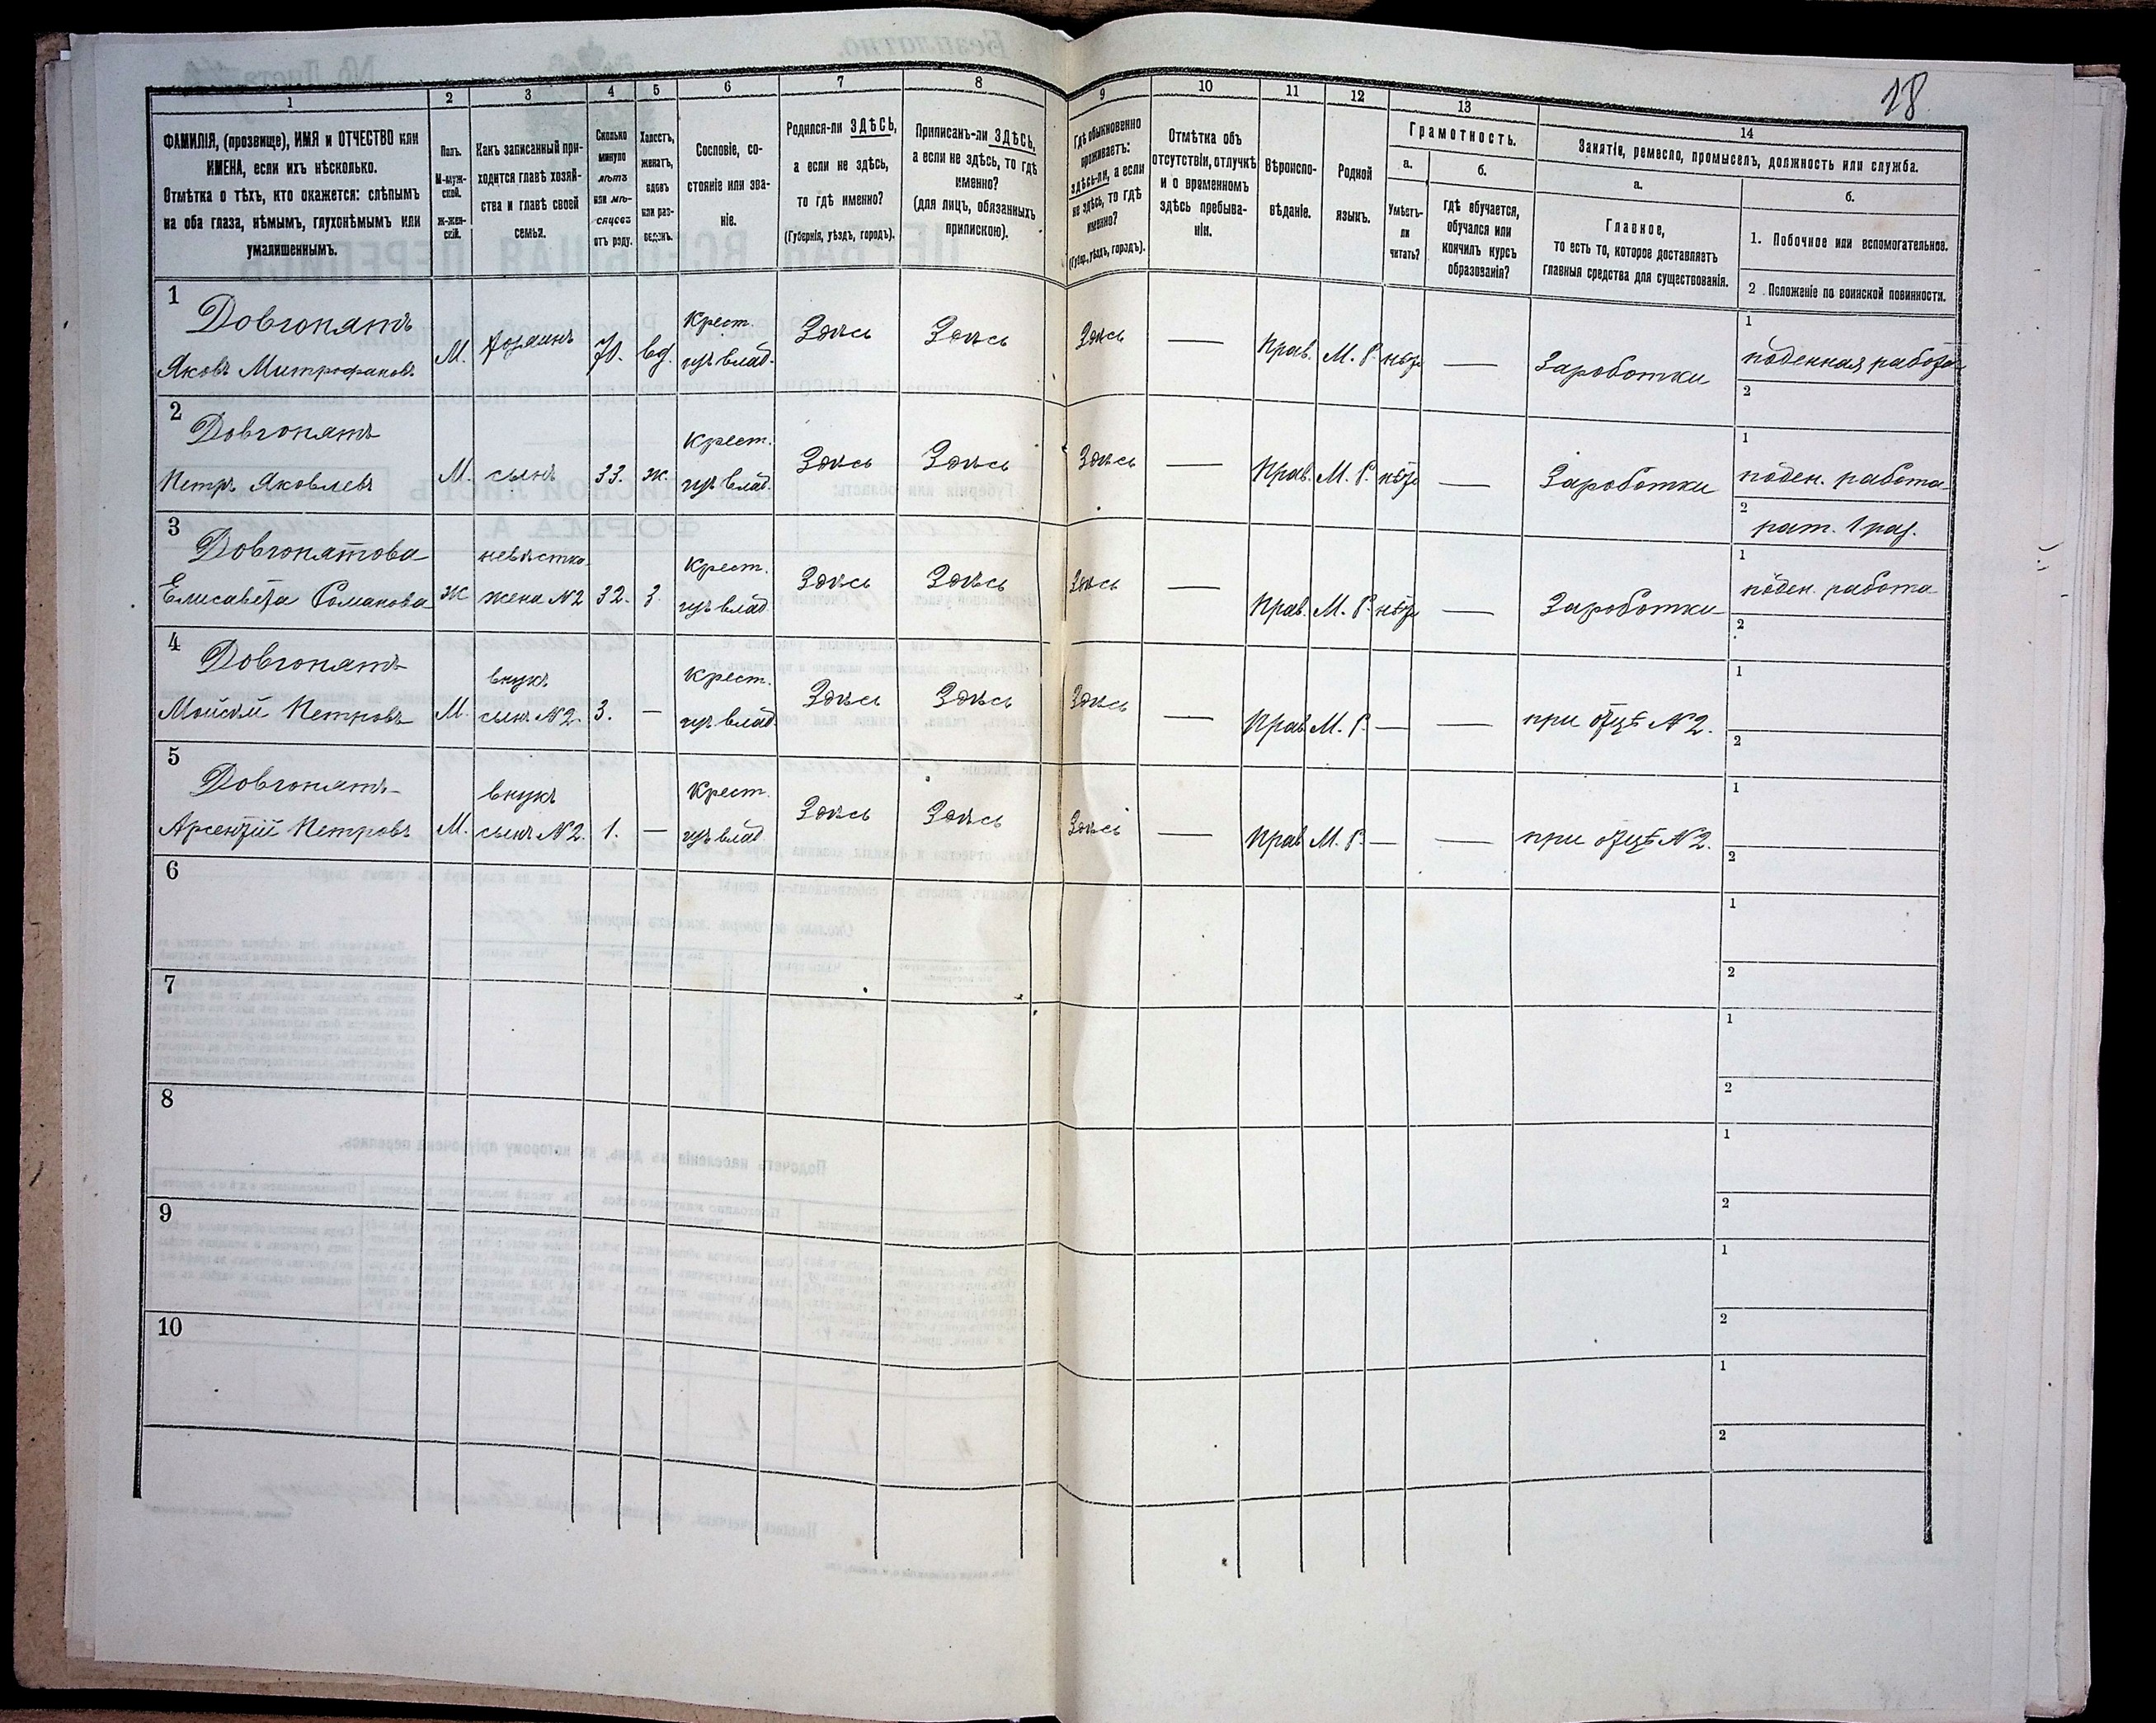 18
1 2 3 4 5 6 7 8 9 10 11 12 13 14
ФАМИЛІЯ, (прозвище), ИМЯ и ОТЧЕСТВО или
ИМЕНА, если ихъ нѣсколько.
Отмѣтка о тѣхъ, кто окажется: слѣпымъ
на оба глаза, нѣмымъ, глухонѣмымъ или
умалишеннымъ.
Полъ.
М-муж-
ской.
Ж-жен-
скій.
Какъ записанный при-
ходится главѣ хозяй-
ства и главѣ своей
семьи.
Сколько
минуло
лѣтъ
или мѣ-
сяцевъ
отъ роду.
Холостъ,
женатъ,
вдовъ
или раз-
веденъ.
Сословіе, со-
стояніе или зва-
ніе.
Родился-ли ЗДѢСЬ,
а если не здѣсь,
то гдѣ именно?
(Губернія, уѣздъ, городъ).
Приписанъ-ли ЗДѢСЬ,
а если не здѣсь, то гдѣ
именно?
(для лицъ, обязанныхъ
припискою).
Гдѣ обыкновенно
проживаетъ:
здѣсь-ли, а если
не здѣсь, то гдѣ
именно?
(Губер., уѣздъ, городъ).
Отмѣтка объ
отсутствіи, отлучкѣ
и о временномъ
здѣсь пребыва-
ніи.
Вѣроиспо-
вѣданіе.
Родной
языкъ.
Грамотность.
а.
Умѣетъ-
ли
читать?
б.
гдѣ обучается,
обучался или
кончилъ курсъ
образованія?
Занятіе, ремесло, промыселъ, должность или служба.
а.
Главное,
то есть то, которое доставляетъ
главныя средства для существованія.
б.
1. Побочное или вспомогательное.
2 . Положеніе по воинской повинности.
1
Довгопятъ
Яковъ Митрофановъ М. хозяинъ 70. вд.
Крест.
изъ влад. Здѣсь Здѣсь Здѣсь — Прав. М. Р. нѣтъ — Заработки
1 поденная работа
2
2
Довгопятъ
Петръ Яковлевъ М. сынъ 33. ж.
Крест.
изъ влад. Здѣсь Здѣсь Здѣсь — Прав. М. Р. нѣтъ — Заработки
1 поден. работа
2 рат. 1 раз.
3
Довгопятова
Елисавета Романова ж
невѣстка
жена №2 32. з.
Крест.
изъ влад. Здѣсь Здѣсь Здѣсь — Прав. М. Р. нѣтъ — Заработки
1 поден. работа
2
4
Довгопятъ
Моисей Петровъ М.
внукъ
сынъ №2. 3. —
Крест.
изъ влад. Здѣсь Здѣсь Здѣсь — Прав. М. Р. — — при отцѣ №2.
1
2
5
Довгопятъ
Арсентій Петровъ М.
внукъ
сынъ №2. 1. —
Крест.
изъ влад Здѣсь Здѣсь Здѣсь — Прав М. Р. — — при отцѣ №2.
1
2
6
1
2
7
1
2
8
1
2
9
1
2
10
1
2